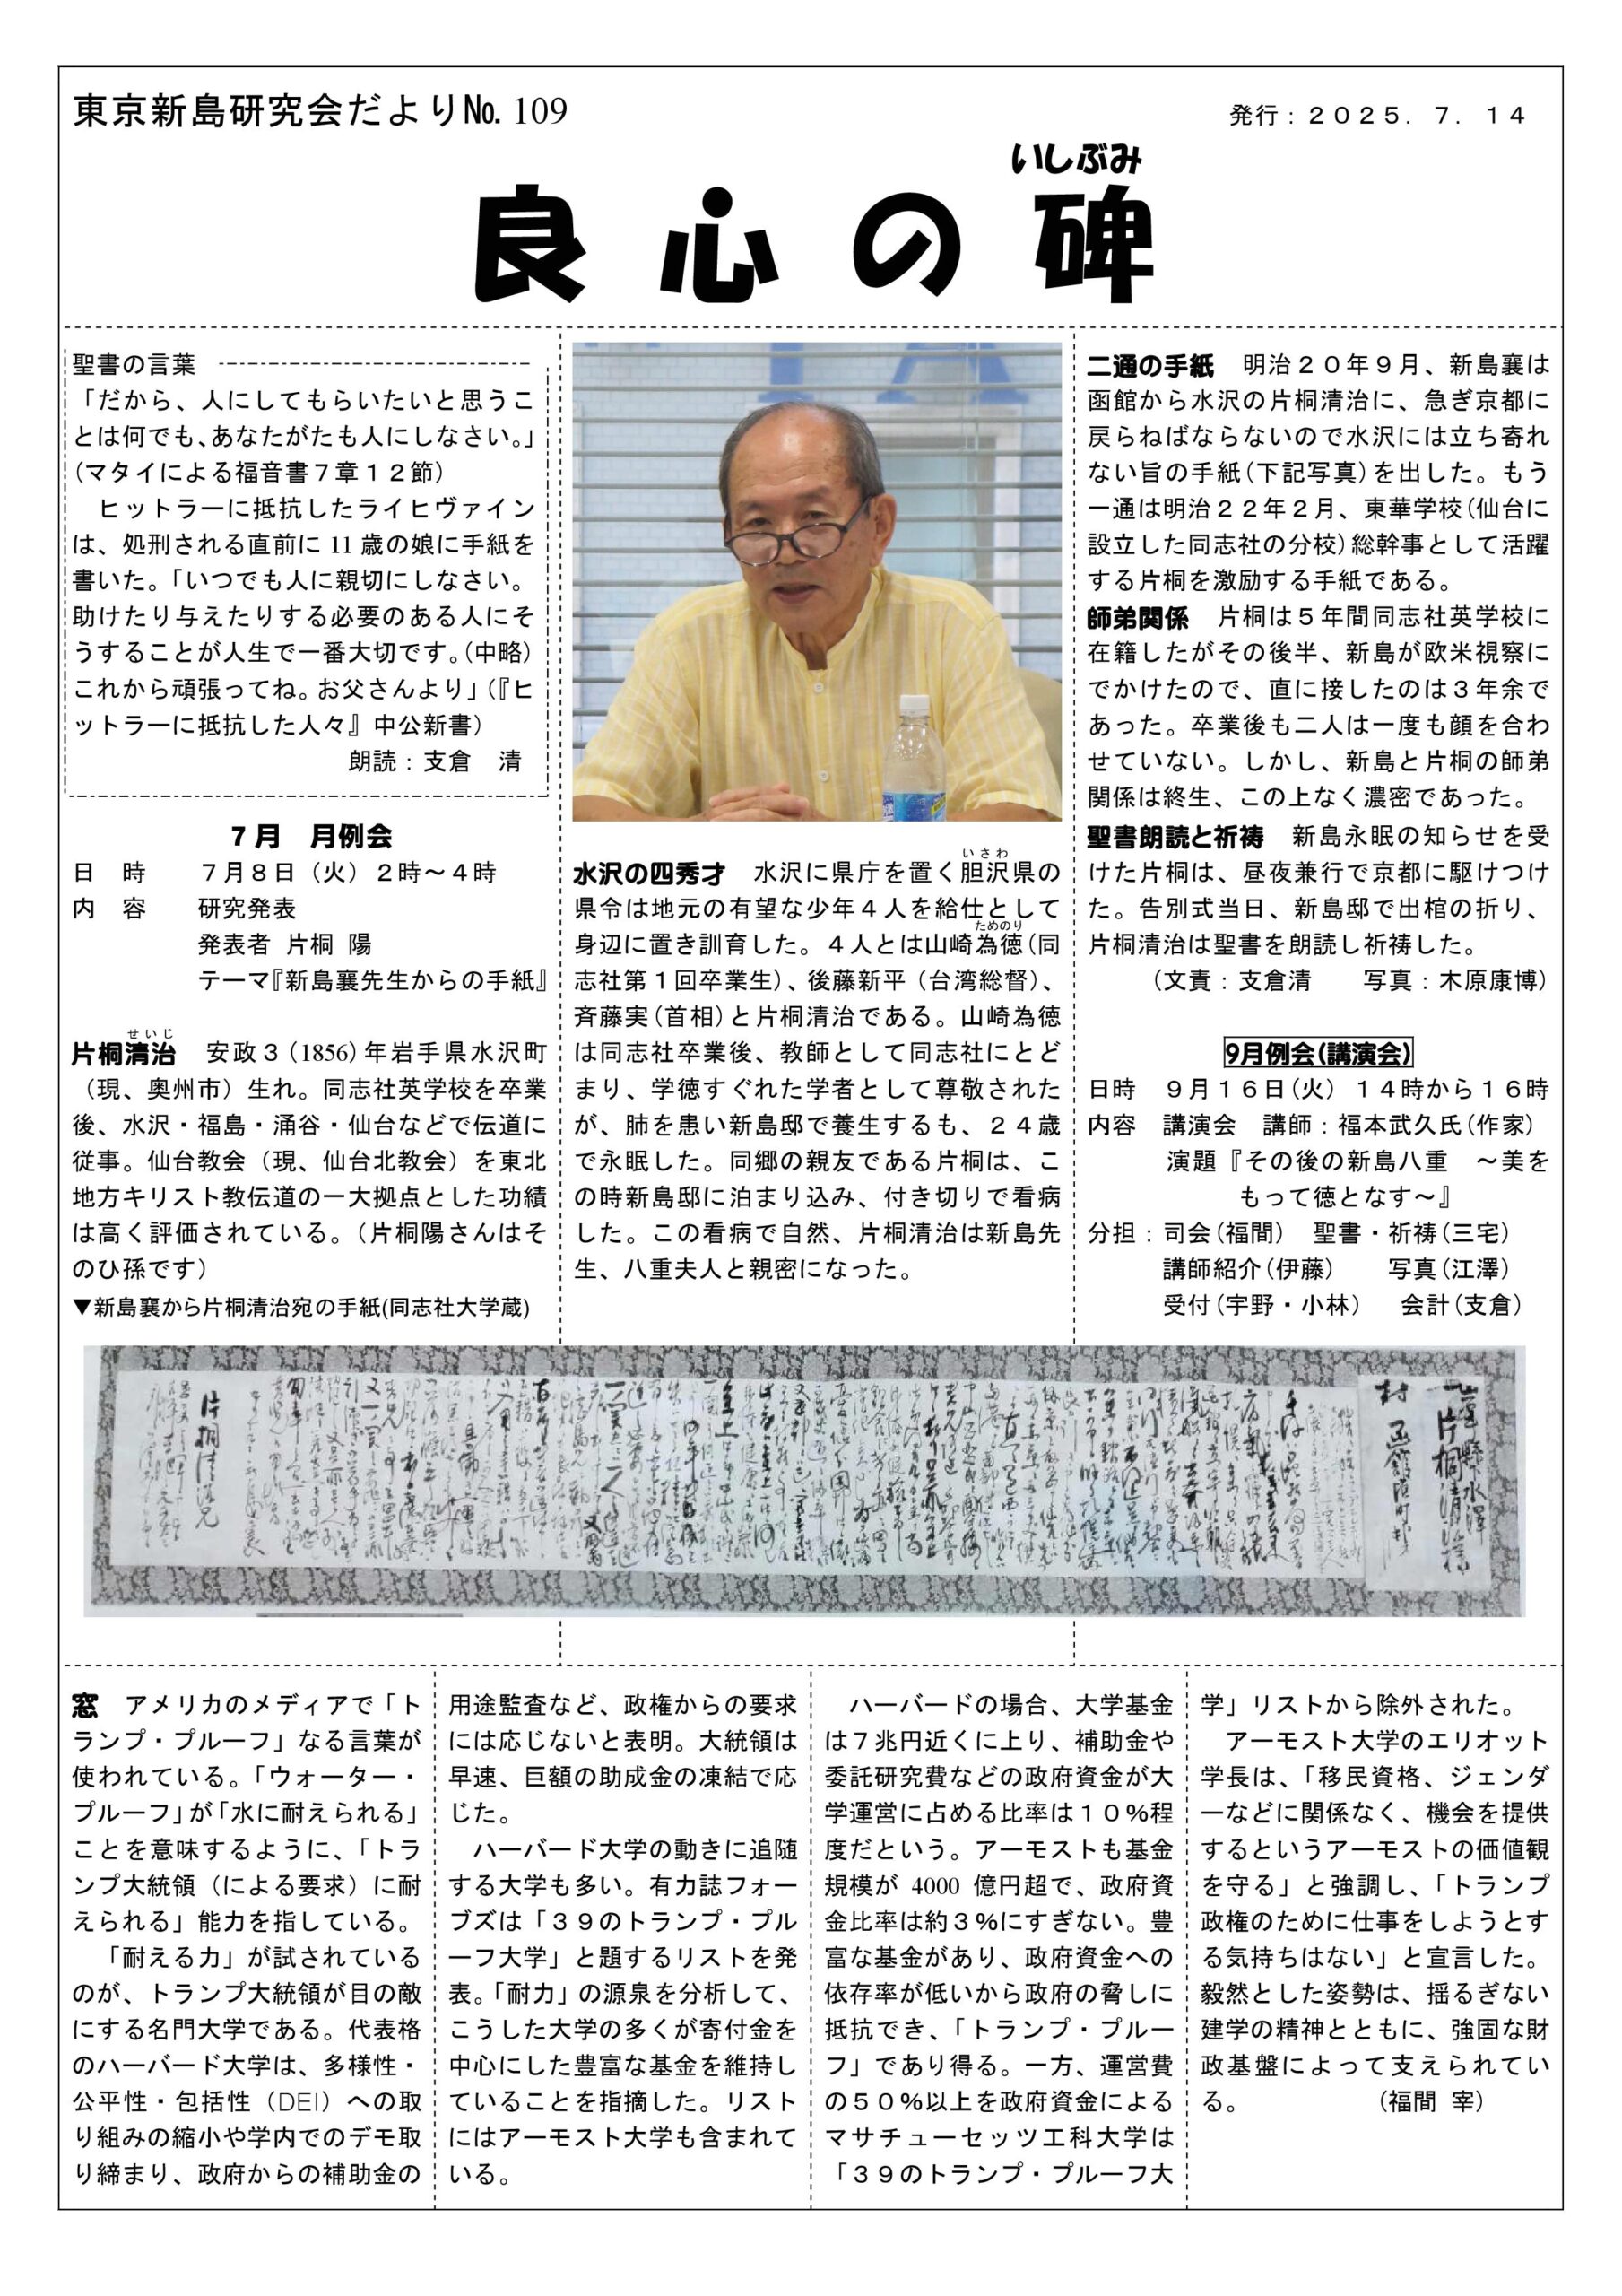 東京新島研究会だよりNo. 109
発行：２０２５．７．１４
いしぶみ
良心の碑
聖書の言葉
「だから、人にしてもらいたいと思うこ
とは何でも、あなたがたも人にしなさい。」
（マタイによる福音書７章１２節）
ヒットラーに抵抗したライヒヴァイン
は、処刑される直前に 11 歳の娘に手紙を
書いた。「いつでも人に親切にしなさい。
助けたり与えたりする必要のある人にそ
うすることが人生で一番大切です。（中略）
これから頑張ってね。お父さんより」（『ヒ
ットラーに抵抗した人々』中公新書）
朗読：支倉　清
７月　月例会
日　時　　７月８日（火）２時～４時
内　容　　研究発表
発表者 片桐 陽
テーマ『新島襄先生からの手紙』
せいじ
片桐清治　安政３（1856）年岩手県水沢町
（現、奥州市）生れ。同志社英学校を卒業
後、水沢・福島・涌谷・仙台などで伝道に
従事。仙台教会（現、仙台北教会）を東北
地方キリスト教伝道の一大拠点とした功績
は高く評価されている。（片桐陽さんはそ
のひ孫です）
▼新島襄から片桐清治宛の手紙(同志社大学蔵)
いさわ
水沢の四秀才　水沢に県庁を置く胆沢県の
県令は地元の有望な少年４人を給仕として
ためのり
身辺に置き訓育した。４人とは山崎為徳（同
志社第１回卒業生）、後藤新平（台湾総督）、
斉藤実（首相）と片桐清治である。山崎為徳
は同志社卒業後、教師として同志社にとど
まり、学徳すぐれた学者として尊敬された
が、肺を患い新島邸で養生するも、２４歳
で永眠した。同郷の親友である片桐は、こ
の時新島邸に泊まり込み、付き切りで看病
した。この看病で自然、片桐清治は新島先
生、八重夫人と親密になった。
二通の手紙　明治２０年９月、新島襄は
函館から水沢の片桐清治に、急ぎ京都に
戻らねばならないので水沢には立ち寄れ
ない旨の手紙（下記写真）を出した。もう
一通は明治２２年２月、東華学校（仙台に
設立した同志社の分校）総幹事として活躍
する片桐を激励する手紙である。
師弟関係　片桐は５年間同志社英学校に
在籍したがその後半、新島が欧米視察に
でかけたので、直に接したのは３年余で
あった。卒業後も二人は一度も顔を合わ
せていない。しかし、新島と片桐の師弟
関係は終生、この上なく濃密であった。
聖書朗読と祈祷　新島永眠の知らせを受
けた片桐は、昼夜兼行で京都に駆けつけ
た。告別式当日、新島邸で出棺の折り、
片桐清治は聖書を朗読し祈祷した。
（文責：支倉清　　写真：木原康博）
9月例会(講演会)
日時　９月１６日（火）１４時から１６時
内容　講演会　講師：福本武久氏（作家）
演題『その後の新島八重　～美を
もって徳となす～』
分担：司会（福間）　聖書・祈祷（三宅）
講師紹介（伊藤）　　写真（江澤）
受付（宇野・小林）　会計（支倉）
片桐清治兄
窓　アメリカのメディアで「ト
ランプ・プルーフ」なる言葉が
使われている。「ウォーター・
プルーフ」が「水に耐えられる」
ことを意味するように、「トラ
ンプ大統領（による要求）に耐
えられる」能力を指している。
「耐える力」が試されている
のが、トランプ大統領が目の敵
にする名門大学である。代表格
のハーバード大学は、多様性・
公平性・包括性（DEI）への取
り組みの縮小や学内でのデモ取
り締まり、政府からの補助金の
用途監査など、政権からの要求
には応じないと表明。大統領は
早速、巨額の助成金の凍結で応
じた。
ハーバード大学の動きに追随
する大学も多い。有力誌フォー
ブズは「３９のトランプ・プル
ーフ大学」と題するリストを発
表。「耐力」の源泉を分析して、
こうした大学の多くが寄付金を
中心にした豊富な基金を維持し
ていることを指摘した。リスト
にはアーモスト大学も含まれて
いる。
ハーバードの場合、大学基金
は７兆円近くに上り、補助金や
委託研究費などの政府資金が大
学運営に占める比率は１０％程
度だという。アーモストも基金
規模が 4000 億円超で、政府資
金比率は約３％にすぎない。豊
富な基金があり、政府資金への
依存率が低いから政府の脅しに
抵抗でき、「トランプ・プルー
フ」であり得る。一方、運営費
の５０％以上を政府資金による
マサチューセッツ工科大学は
「３９のトランプ・プルーフ大
学」リストから除外された。
アーモスト大学のエリオット
学長は、「移民資格、ジェンダ
ーなどに関係なく、機会を提供
するというアーモストの価値観
を守る」と強調し、「トランプ
政権のために仕事をしようとす
る気持ちはない」と宣言した。
毅然とした姿勢は、揺るぎない
建学の精神とともに、強固な財
政基盤によって支えられてい
る。　　　　　（福間 宰）